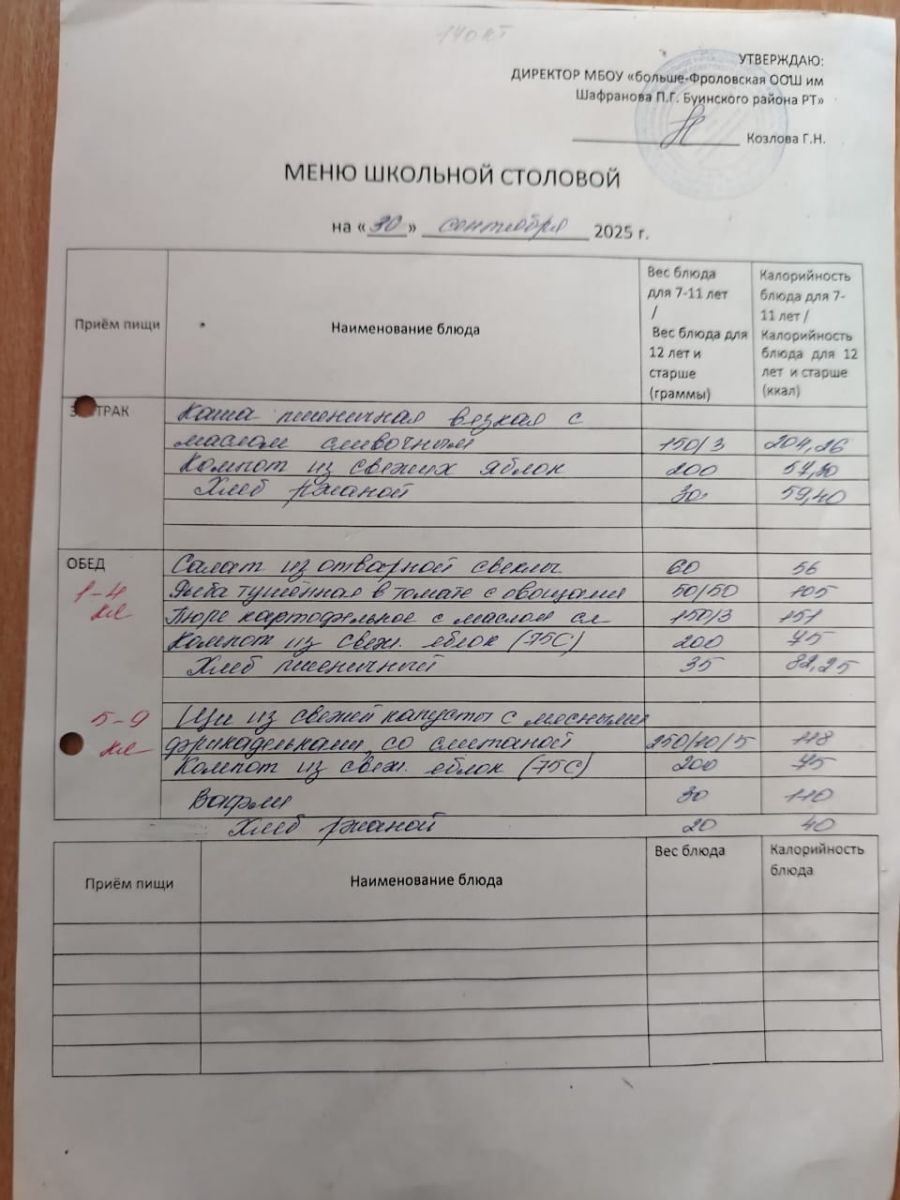 УТВЕРЖДАЮ:
ДИРЕКТОР МБОУ «больше-Фроловская ООШ им
Шафранова П.Г. Буинского района РТ»
Козлова Г.Н.
МЕНЮ ШКОЛЬНОЙ СТОЛОВОЙ
на «30» сентября 2025 г.
Приём пищи Наименование блюда Вес блюда для 7-11 лет / Вес блюда для 12 лет и старше (граммы) Калорийность блюда для 7-11 лет / Калорийность блюда для 12 лет и старше (ккал)
Каша пшеничная вязкая с
маслом сливочным 150/3 204,26
Компот из свежих яблок 200
Хлеб ржаной 30 59,40
ОБЕД Салат из отварной свеклы 60 56
1-4 Рыба тушённая в томате с овощами 50/50 105
кл Пюре картофельное с маслом сл 150/3 151
Компот из свеж. яблок (75С) 200 75
Хлеб пшеничный 35 82,25
5-9 Щи из свежей капусты с мясными
кл фрикадельками, со сметаной 250/10/5 118
Компот из свеж. яблок (75С) 200 75
Вафли 30 110
Хлеб ржаной 20 40
Приём пищи Наименование блюда Вес блюда Калорийность блюда